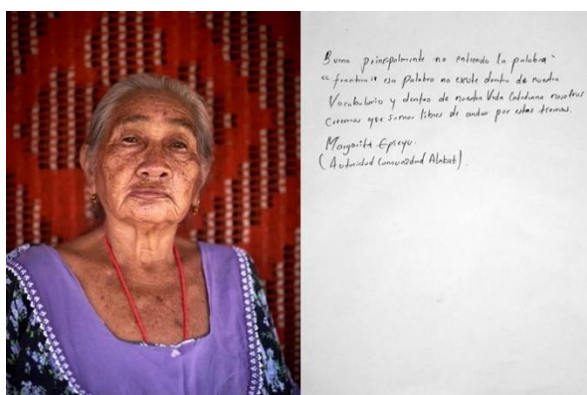 Bueno principalmente no entiendo la palabra
"frontera" esa palabra no existe dentro de nuestro
Vocabulario y dentro de nuestra Vida Cotidiana nosotros
Creemos que somos libres de andar por estas tierras.
Margarita Epieyu.
(Autoridad Comunidad Alakat).